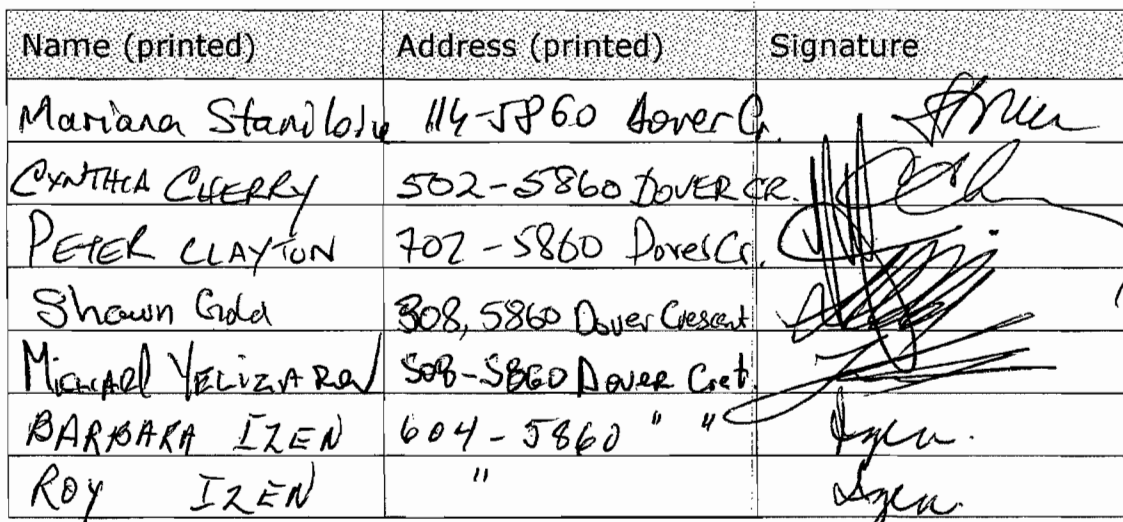 Name (printed) Address (printed) Signature
Mariana 114-5860 Dover Cr.
CYNTHIA CHERRY 502-5860 DOVER CR.
PETER CLAYTON 702-5860 Dover Cr.
Shawn Gold 308, 5860 Dover Crescent
Michael YELIZAROV 508-5860 Dover Cret.
BARBARA IZEN 604-5860 " " Izen.
ROY IZEN " Izen.